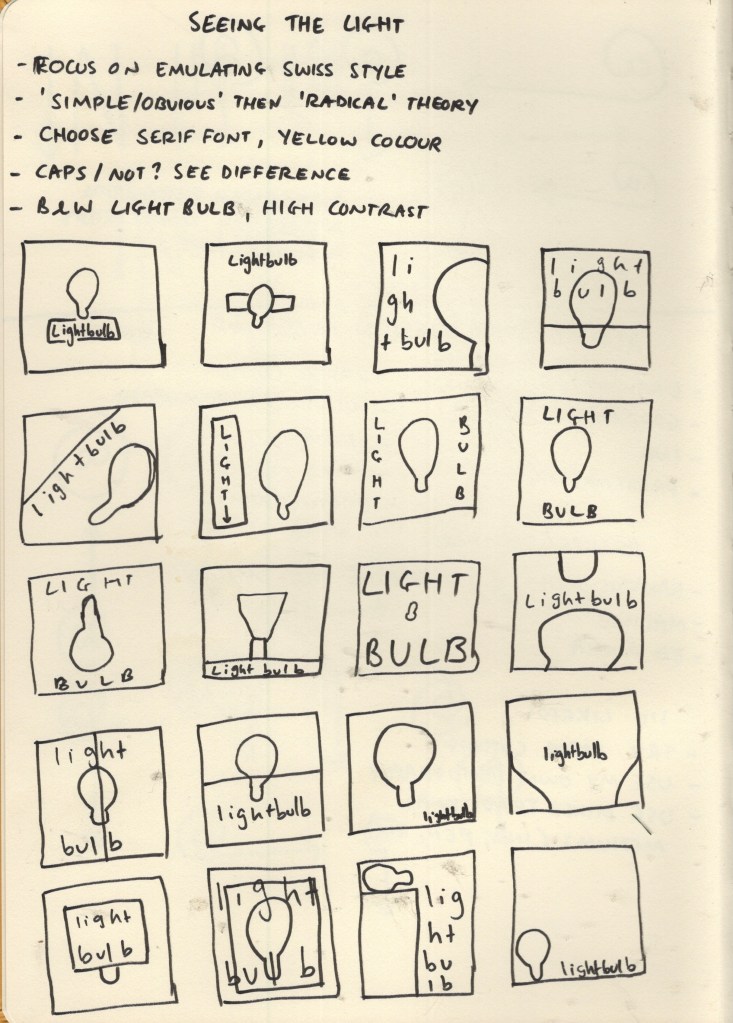 SEEING THE LIGHT
- FOCUS ON EMULATING SWISS STYLE
- 'SIMPLE/OBVIOUS' THEN 'RADICAL' THEORY
- CHOOSE SERIF FONT, YELLOW COLOUR
- CAPS/NOT? SEE DIFFERENCE
- B&W LIGHT BULB, HIGH CONTRAST
Lightbulb
Lightbulb
li
gh
t bulb
light
bulb
lightbulb
LIGHT
LIGHT
BULB
LIGHT
BULB
LIGHT
BULB
Light bulb
LIGHT
BULB
Lightbulb
light
bulb
lightbulb
lightbulb
lightbulb
light
bulb
light
bulb
lig
ht
bu
lb
lightbulb